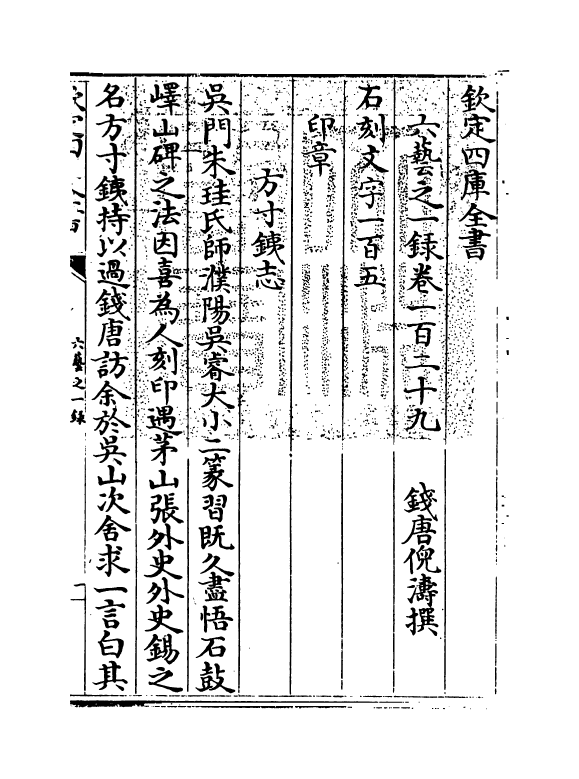 欽定四庫全書
六藝之一録卷一百二十九
錢唐倪濤撰
石刻文字一百五
印章
方寸銕志
吳門朱珪氏師濮陽吳睿大小二篆習既久盡悟石鼓
嶧山碑之法因喜為人刻印遇茅山張外史外史錫之
名方寸銕持以過錢唐訪余於吳山次舍求一言白其
六藝之一録